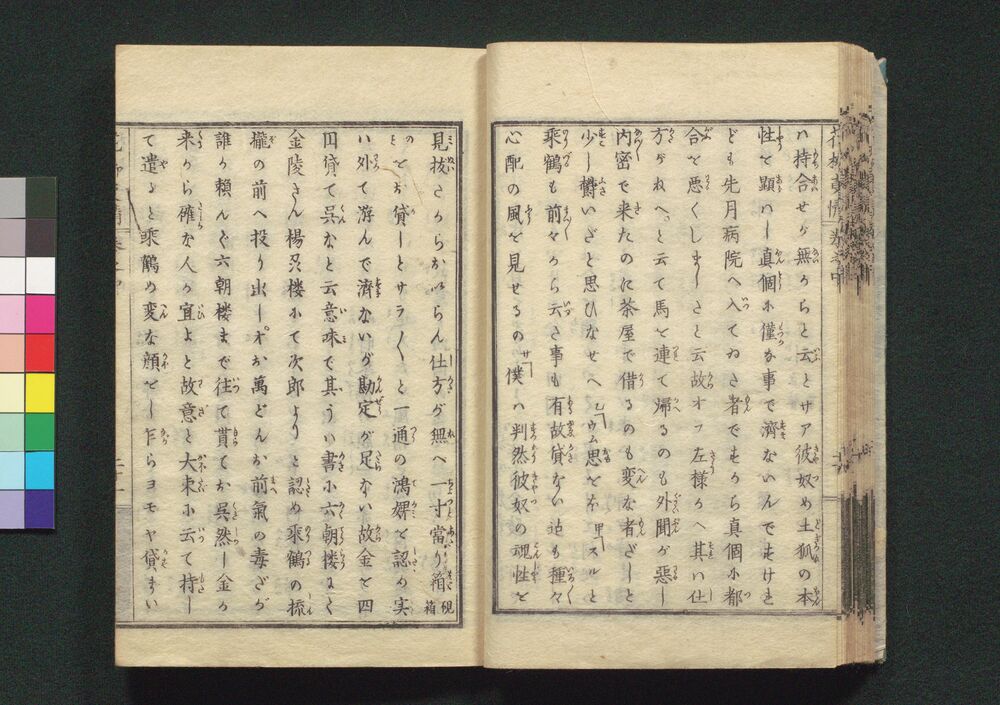 ハ持合せが無からと云とサア彼奴め土狐の本
性を顕ハし真個ホ僅な事で済ないんですけれ
ども先月病院へ入てゐた者ですから真個ホ都
合を悪くしましたと云故オフ左様かへ其ハ仕
方がねへと云て馬を連て帰るのも外聞が悪し
内密で来たのに茶屋で借るのも変な者だしと
少し欝いだと思ひなせへ乙ウム思をホ甲スルと
乗鶴も前々から云た事も有故貸ない迚も種々
心配の風を見せるの僕ハ判然彼奴の魂性を
見抜たからかいらん仕方が無へ一寸當り箱硯箱
をお貸しとサラ〱と一通の鴻娉を認め実
ハ外で游んで済ないが勘定が足ない故金を四
田貸て呉なと云意味で其うハ書ホ六朝楼にて
金陵さん楊呂楼ホて次郎よりと認め乗鶴の
櫳の前へ投り出しオかどんか前氣の毒だが
誰か頼んで六朝楼まで往て貰てお呉然し金が
来から確な人が宜よと故意と大束ホ云て持し
て遣ると乗鶴め変な顔をし乍らヨモヤ貸まい